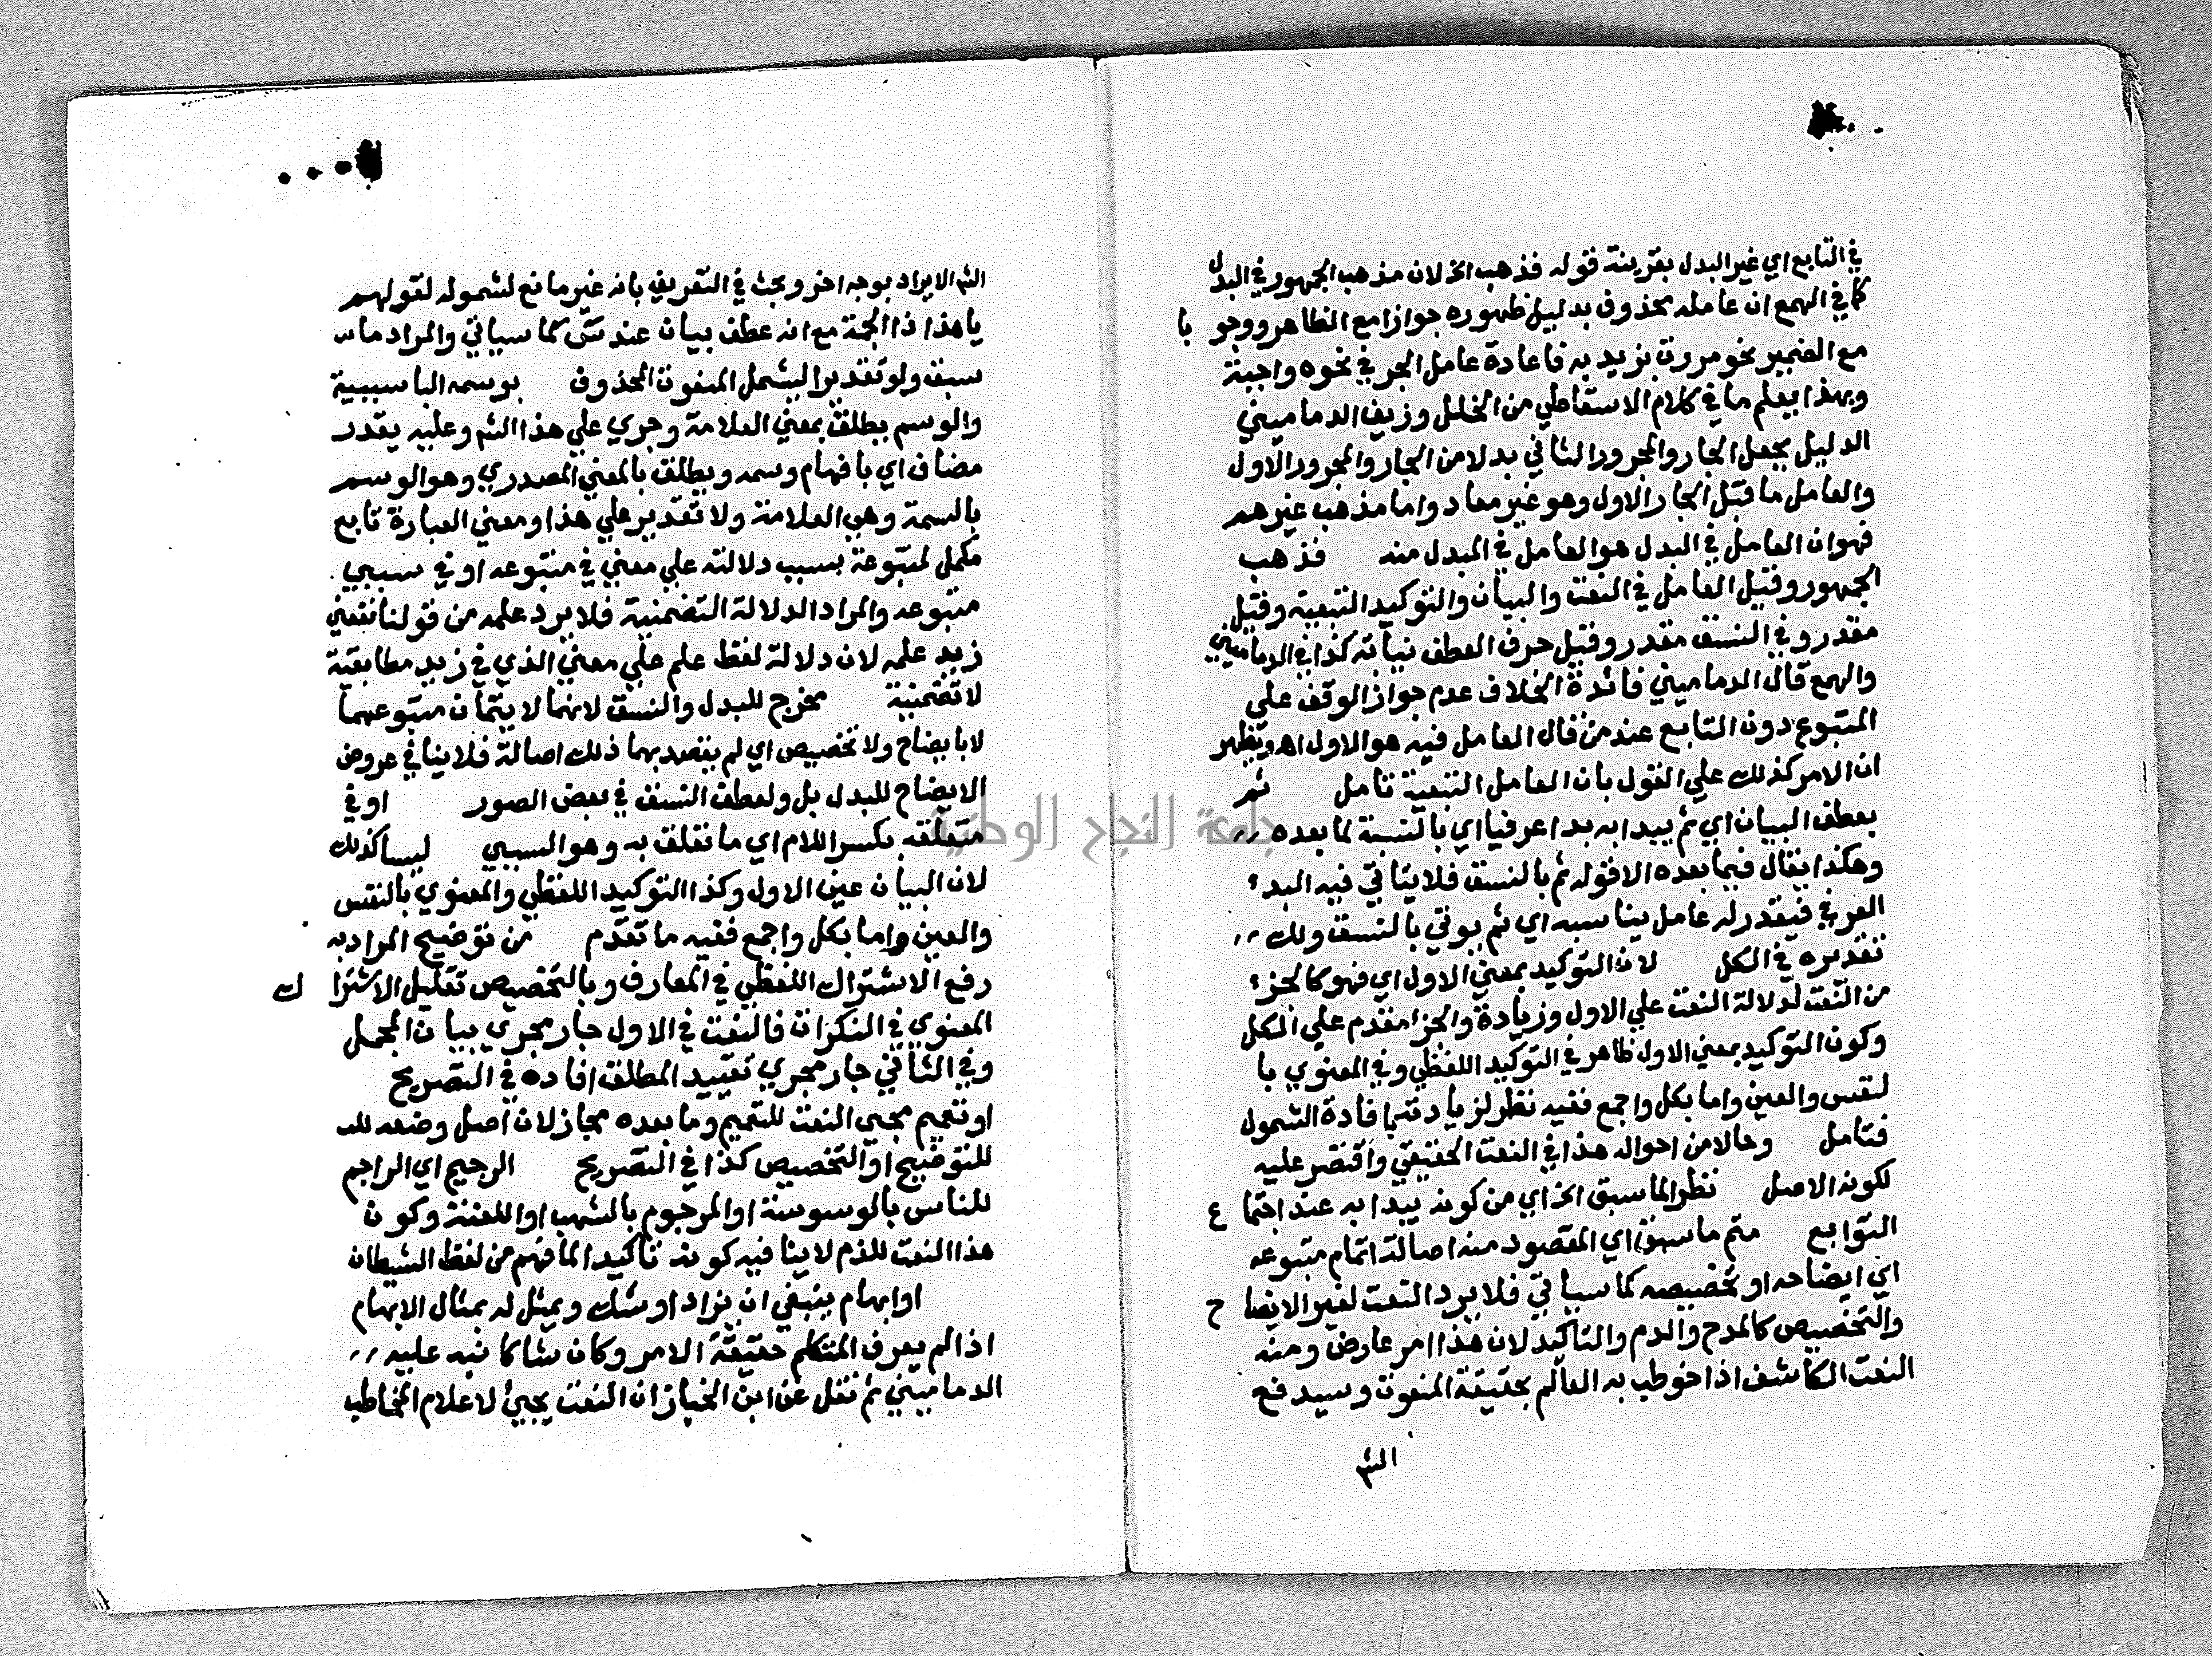 في التابع اي غير البدل بقرينة قوله فذهب الخ لان مذهب الجمهور في البدل
كما في الهمع ان عامله محذوف بدليل ظهوره جوازا مع الظاهر ووجو با
مع الضمير نحو مررت بزيد به فاعادة عامل الجر في نحوه واجبة
وبهذا يعلم ما في كلام الاسقاطي من الخلل وزيف الدماميني
الدليل بجعل الجار والمجرور الثاني بدلا من الجار والمجرور الاول
والعامل ما قبل الجار الاول وهو غير معاد واما مذهب غيرهم
فهوان العامل في البدل هو العامل في المبدل منه فذهب
الجمهور وقيل العامل في النعت والبيان والتوكيد التبعية وقيل
مقدر وفي النسق مقدر وقيل حرف العطف نيابة كذا في الدماميني
والهمع قال الدماميني فائدة الخلاف عدم جواز الوقف علي
المتبوع دون التابع عند من قال العامل فيه هو الاول اه ويظهر
ان الامر كذلك علي القول بان العامل التبعية تامل ثم
بعطف البيان اي ثم يبدا به بدا عرفيا اي بالنسبة لما بعده
وهكذا يقال فيما بعده الا قوله ثم بالنسق فلا يتاتي فيه البدء
العرفي فيقدر له عامل يناسبه اي ثم يوتي بالنسق ولك
تقديره في الكل لان التوكيد بمعني الاول اي فهو كالجزء
من النعت لدلالة النعت علي الاول وزيادة والجزا مقدم علي الكل
وكون التوكيد بمعني الاول ظاهر في التوكيد اللفظي وفي المعنوي با
لنفس والعين واما بكل واجمع ففيه نظر لزيادتها فادة الشمول
فتامل وحالا من احواله هذا في النعت الحقيقي واقتصر عليه
لكونه الاصل نظرا لما سبق الخ اي من كونه يبدا به عند اجتما ع
التوابع متم ما سبق اي المقصود منه اصالة اتمام متبوعه
اي ايضاحه او تخصيصه كما سياتي فلا يرد النعت لغير الايضا ح
والتخصيص كالمدح والذم والتاكيد لان هذا امر عارض ومنه
النعت الكاشف اذا خوطب به العالم بحقيقة المنعوت وسيدفع
الش
الش الايراد بوجه اخر وبحث في التعريف بانه غير مانع لشموله لقولهم
يا هذا ذا الجمة مع انه عطف بيان عند س كما سياتي والمراد ما س
سبق ولو تقديرا ليشمل المنعوت المحذوف بوسمه البا سببية
والوسم يطلق بمعني العلامة وجري علي هذا الش وعليه يقدر
مضاف اي بافهام وسمه ويطلق بالمعني المصدري وهو الوسم
بالسمة وهي العلامة ولا تقدير علي هذا ومعني العبارة تابع
مكمل لمتبوعة بسبب دلالته علي معني في متبوعه او في سببي
متبوعه والمراد الدلالة التضمنية فلا يرد علمه من قولنا نفعني
زيد علمه لان دلالة لفظ علم علي معني الذي في زيد مطابقية
لا تضمنية مخرج للبدل والنسق لانهما لا يتمان متبوعهما
لا بايضاح ولا تخصيص اي لم يقصد بهما ذلك اصالة فلا ينافي عروض
الايضاح للبدل بل ولعطف النسق في بعض الصور او في
متعلقه بكسر اللام اي ما تعلق به وهو السببي ليسا كذلك
لان البيان عين الاول وكذا التوكيد اللفظي والمعنوي بالنفس
والعين واما بكل واجمع ففيه ما تقدم من توضيح المراد به
رفع الاشتراك اللفظي في المعارف وبالتخصيص تقليل الاشترا ك
المعنوي في النكرات فالنعت في الاول جار مجري بيان المجمل
وفي الثاني جار مجري تقييد المطلق افاده في التصريح
او تعميم مجي النعت للتعميم وما بعده مجاز لان اصل وضعه للت
للتوضيح او التخصيص كذا في التصريح الرجيم اي الراجم
للناس بالوسوسة او المرجوم بالشهب او اللعنة وكون
هذا النعت للذم لا ينا فيه كونه تاكيدا لما فهم من لفظ الشيطان
او ابهام ينبغي ان يزاد او شك ويمثل له بمثال الابهام
اذا لم يعرف المتكلم حقيقة الامر وكان شاكا نبه عليه
الدماميني ثم نقل عن ابن الخباز ان النعت يجئ لاعلام المخاطب
جامعة النجاح الوطنية